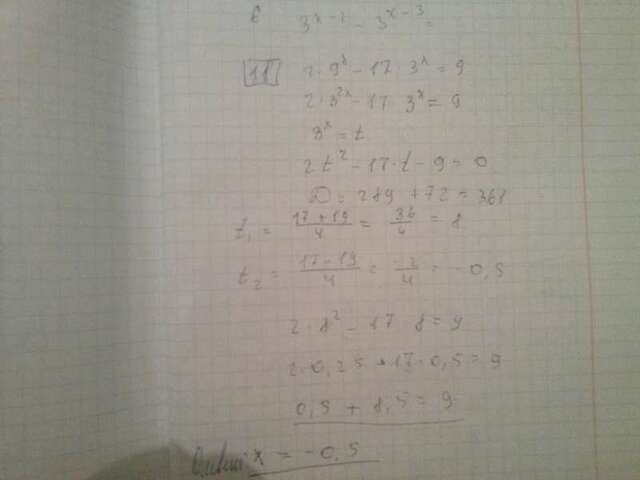 3^{x-1} - 3^{x-3} =
11 2·9^x - 17 3^x = 9
2·3^{2x} - 17 3^x = 9
3^x = t
2t^2 - 17·t - 9 = 0
D = 289 + 72 = 361
t_1 = \frac{17+19}{4} = \frac{36}{4} = 8
t_2 = \frac{17-19}{4} = \frac{-2}{4} = -0,5
2·8^2 - 17 8 = 9
2·0,25 + 17·0,5 = 9
0,5 + 8,5 = 9
x = -0,5